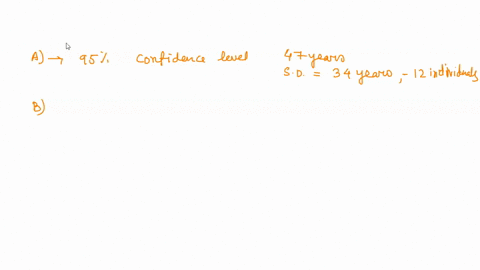 A) → 95% confidence level 47 years
S.D. = 34 years, - 12 individuals
B)